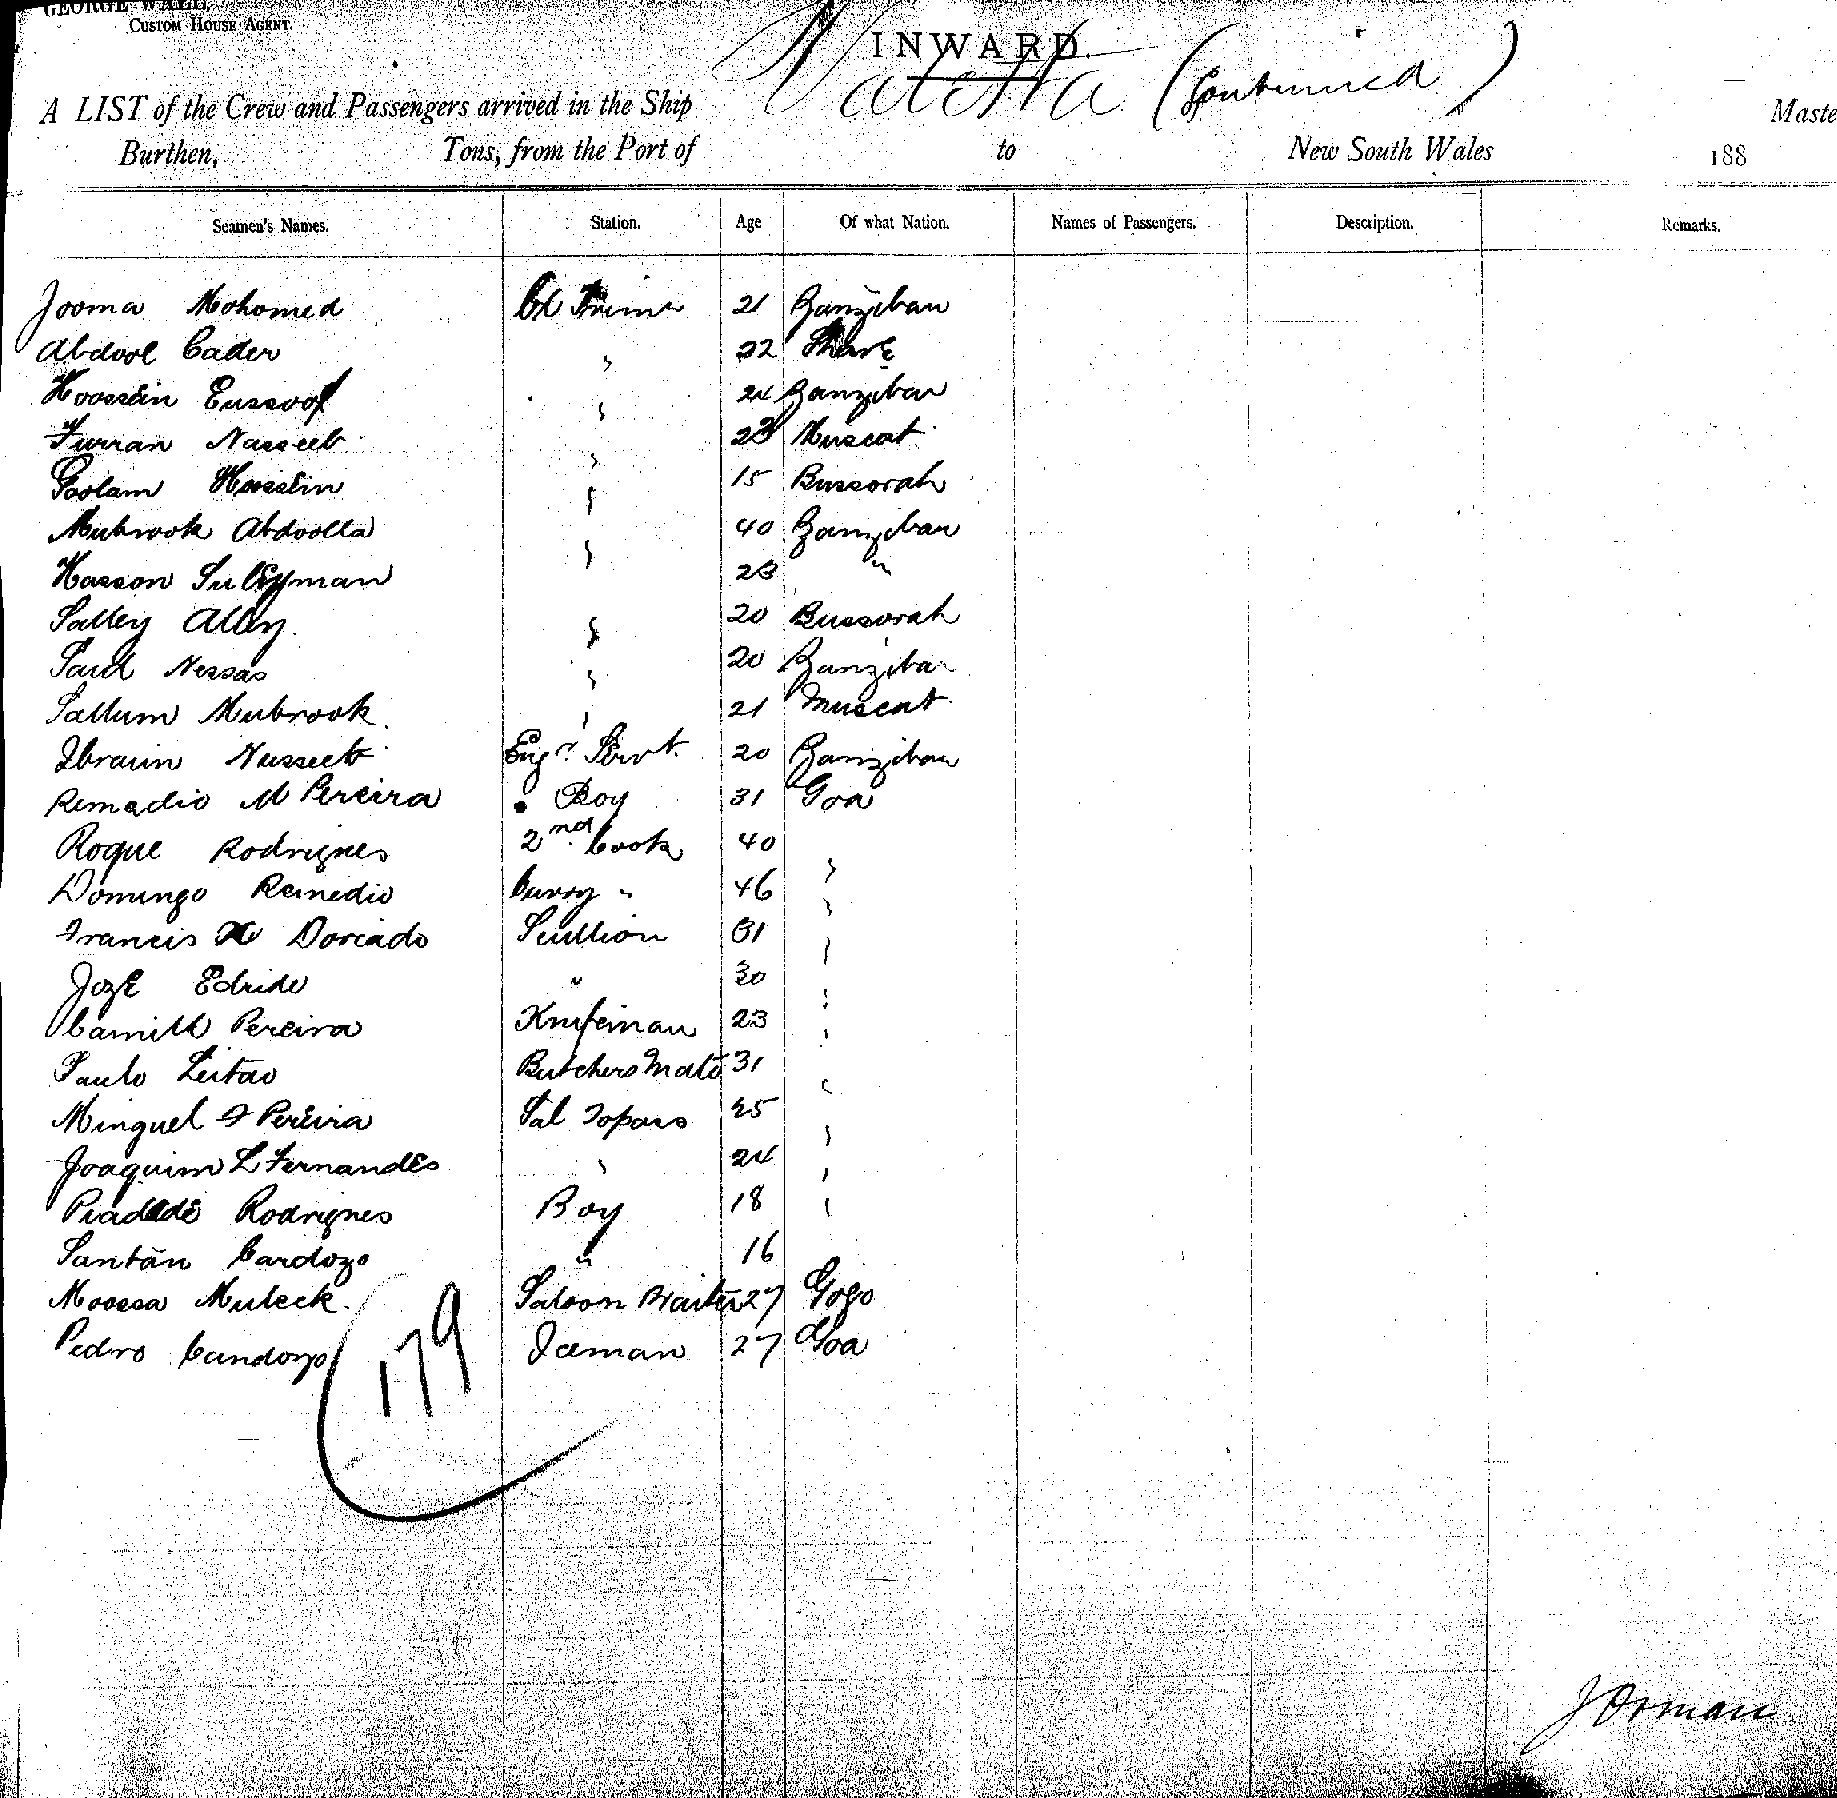 GEORGE WALL,
CUSTOM HOUSE AGENT.
INWARD.
A LIST of the Crew and Passengers arrived in the Ship Valetta (Continued) Maste
Burthen, Tons, from the Port of to New South Wales 188
Seamen's Names. Station. Age Of what Nation. Names of Passengers. Description. Remarks.
Jooma Mohomed Cl Trimr 21 Zanzibar
Abdool Cader " 22
Hoossein Eussoof " 24 Zanzibar
Furran Nasseeb " 23 Muscat
Goolam Hossein " 15 Bussorah
Mubrook Abdoolla " 40 Zanzibar
Hasson Suleyman 23 "
Salley Alley " 20 Bussorah
Saud Nessas " 20 Zanzibar
Sallum Mubrook " 21 Muscat
Ibraim Nusseeb Engr. Servt. 20 Zanzibar
Remedio M Pereira " Boy 31 Goa
Roque Rodrignes 2nd. Cook 40 "
Domingo Remedio Curry " 46 "
Francis X Dorcado Scullion 31 "
Joze Edrido " 30 "
Camill Pereira Knifeman 23 "
Paulo Leitao Butchers Mate 31 "
Minguel F Pereira Sal Topass 25 "
Joaquim L Fernandes " 24 "
Piadade Rodrignes Boy 18 "
Santan Cardozo " 16
Moosa Muleck. Saloon Waiter 27 Gogo
Pedro Cardozo Iceman 27 Goa
179
J Orman